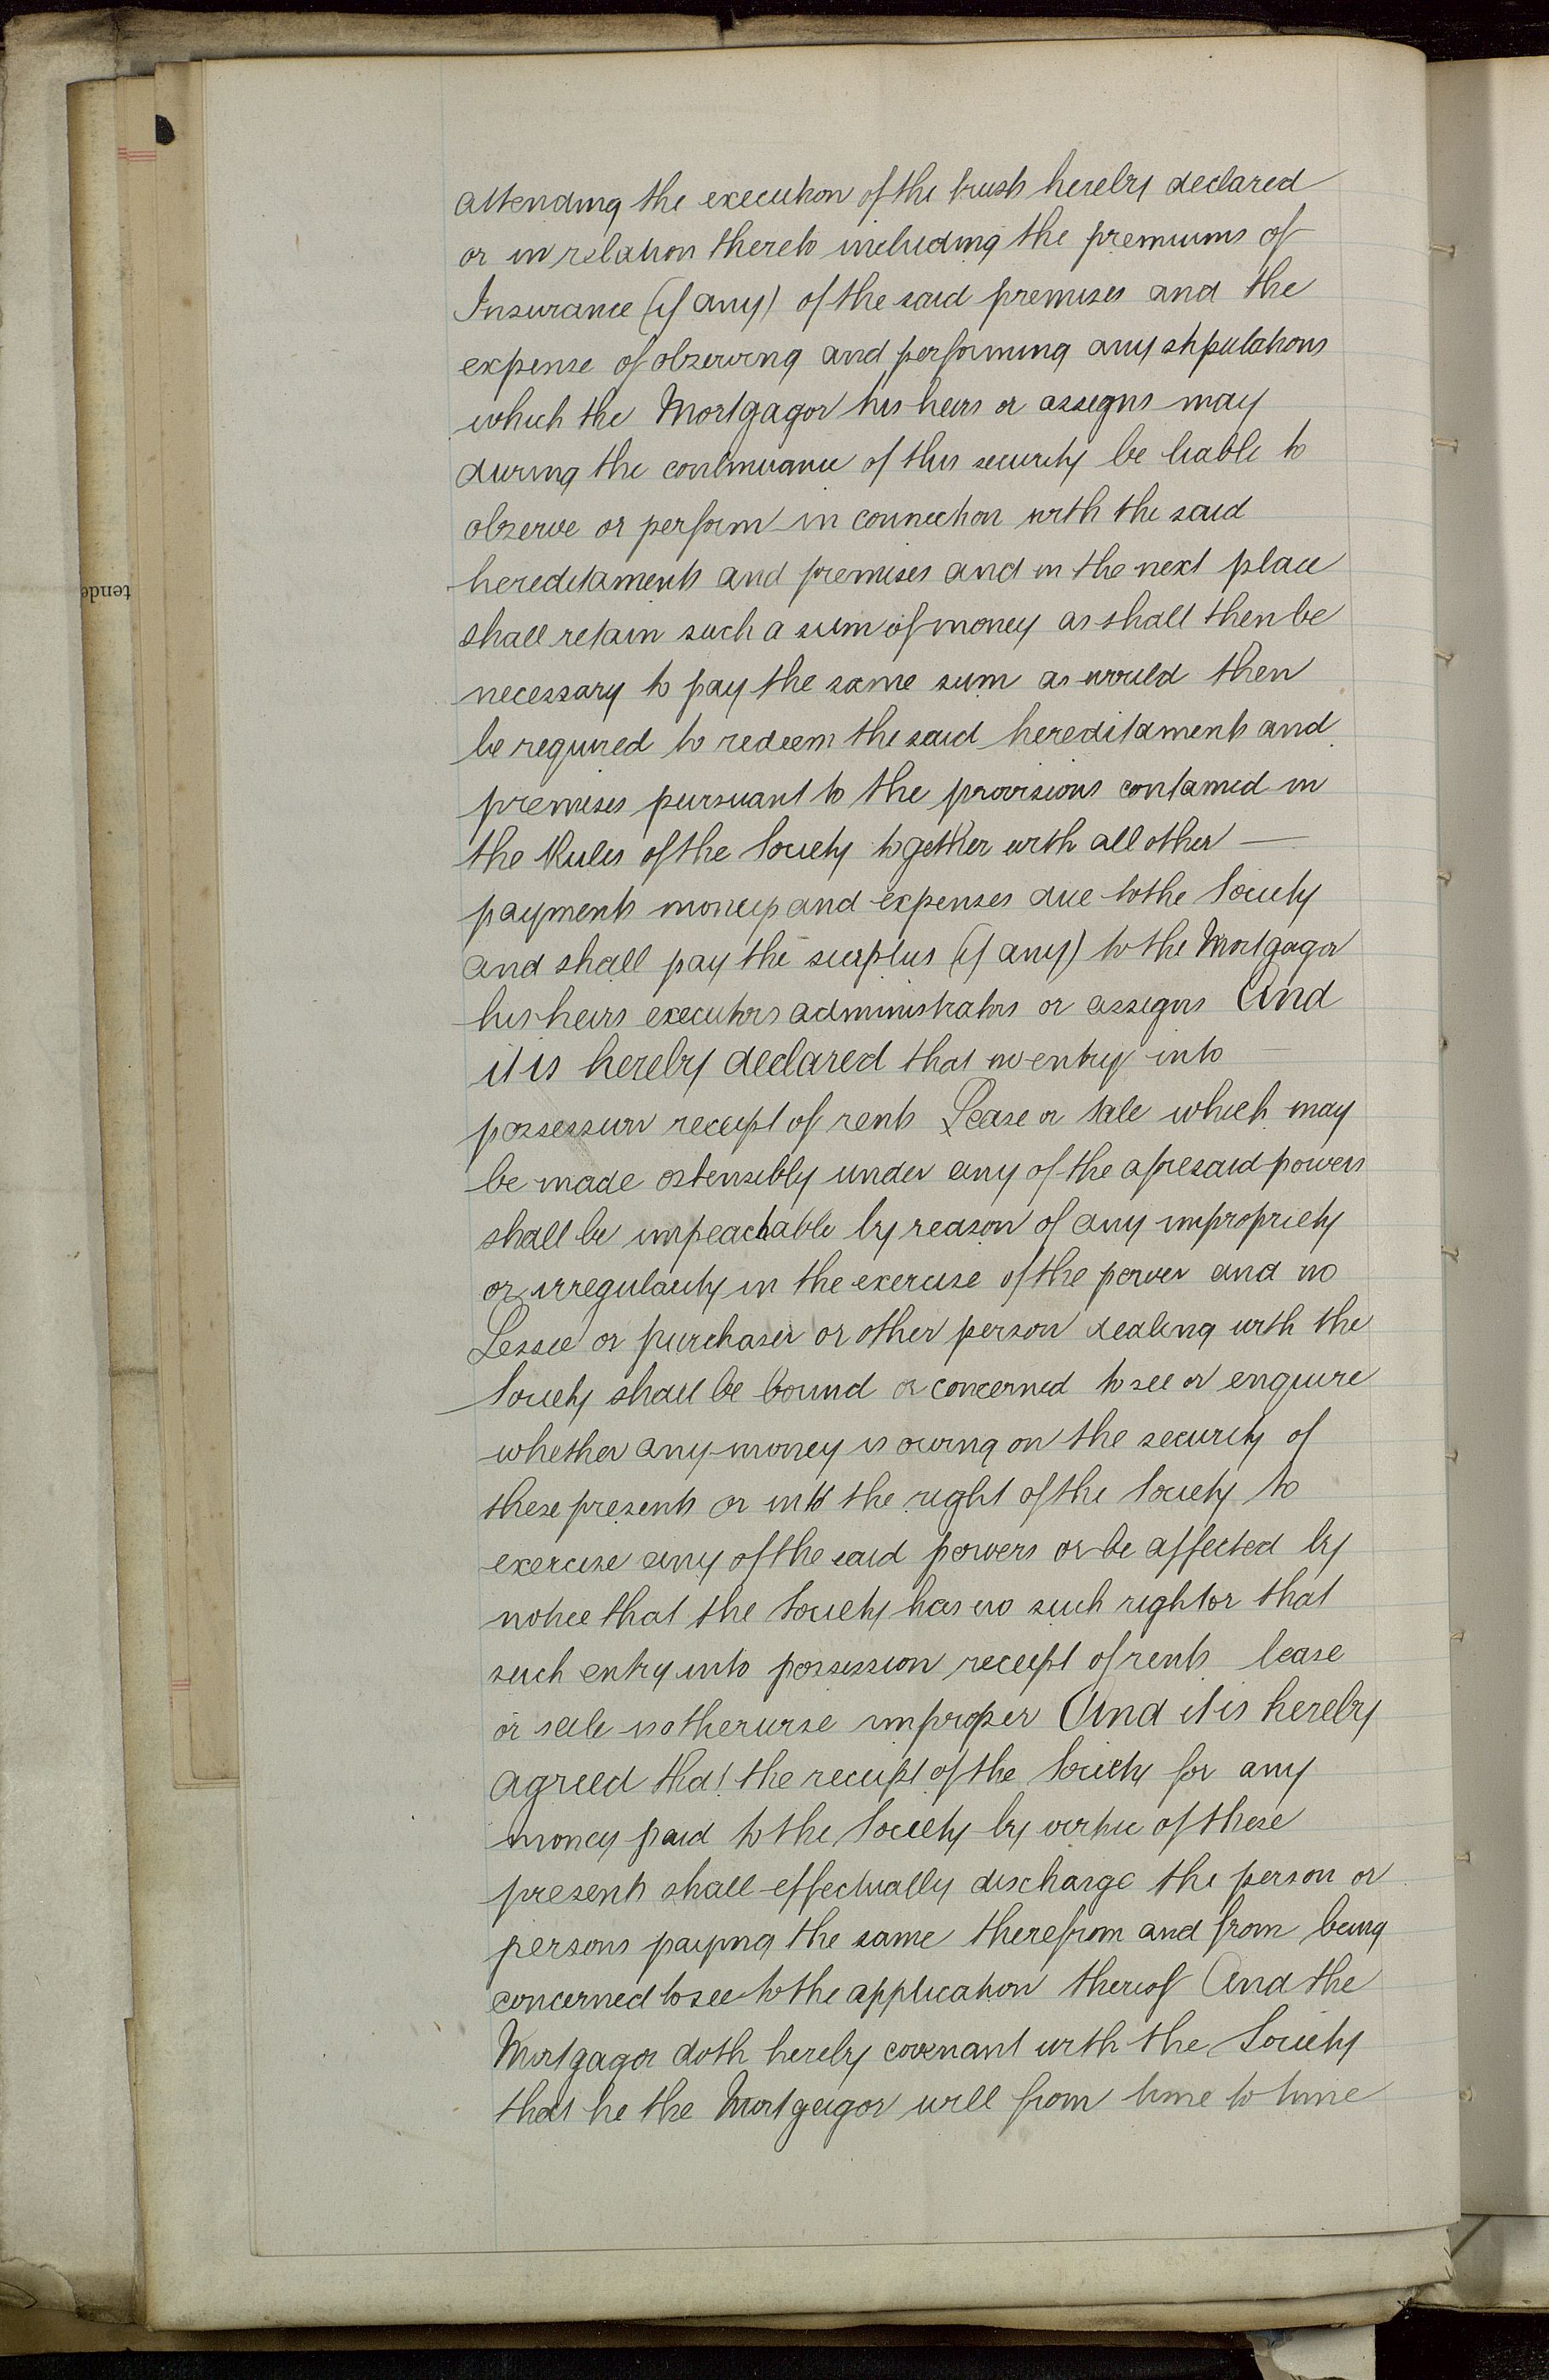 attending the execution of the trusts hereby declared
or in relation thereto including the premiums of
Insurance (if any) of the said premises and the
expense of observing and performing any stipulations
which the Mortgagor his heirs or assigns may
during the continuance of this security be liable to
observe or perform in connection with the said
hereditaments and premises and in the next place
shall retain such a sum of money as shall then be
necessary to pay the same sum as would then
be required to redeem the said hereditaments and
premises pursuant to the provisions contained in
the Rules of the Society together with all other —
payments moneys and expenses due to the Society
and shall pay the surplus (if any) to the Mortgagor
his heirs executors administrators or assigns And
it is hereby declared that no entry into —
possession receipt of rents Lease or Sale which may
be made ostensibly under any of the aforesaid powers
shall be impeachable by reason of any impropriety
or irregularity in the exercise of the power and no
Lessee or purchaser or other person dealing with the
Society shall be bound or concerned to see or enquire
whether any money is owing on the security of
these presents or into the right of the Society to
exercise any of the said powers or be affected by
notice that the Society has no such right or that
such entry into possession receipt of rents lease
or sale is otherwise improper And it is hereby
agreed that the receipt of the Society for any
money paid to the Society by virtue of these
presents shall effectually discharge the person or
persons paying the same therefrom and from being
concerned to see to the application thereof And the
Mortgagor doth hereby covenant with the Society
that he the Mortgagor will from time to time
tende